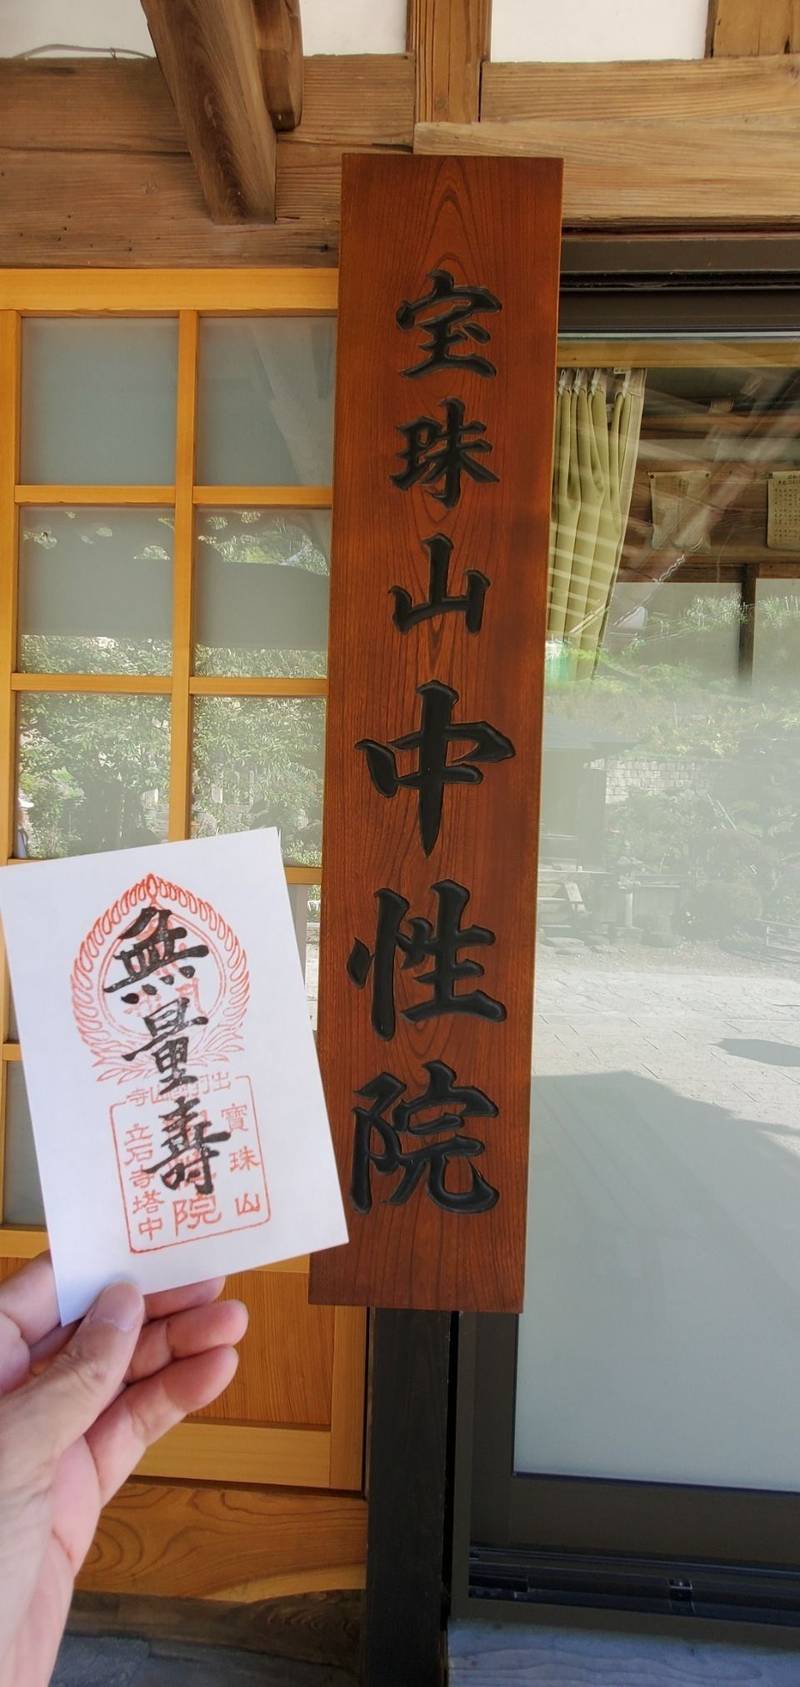 宝珠山中性院
無量壽
寶珠山
院
立石寺塔中